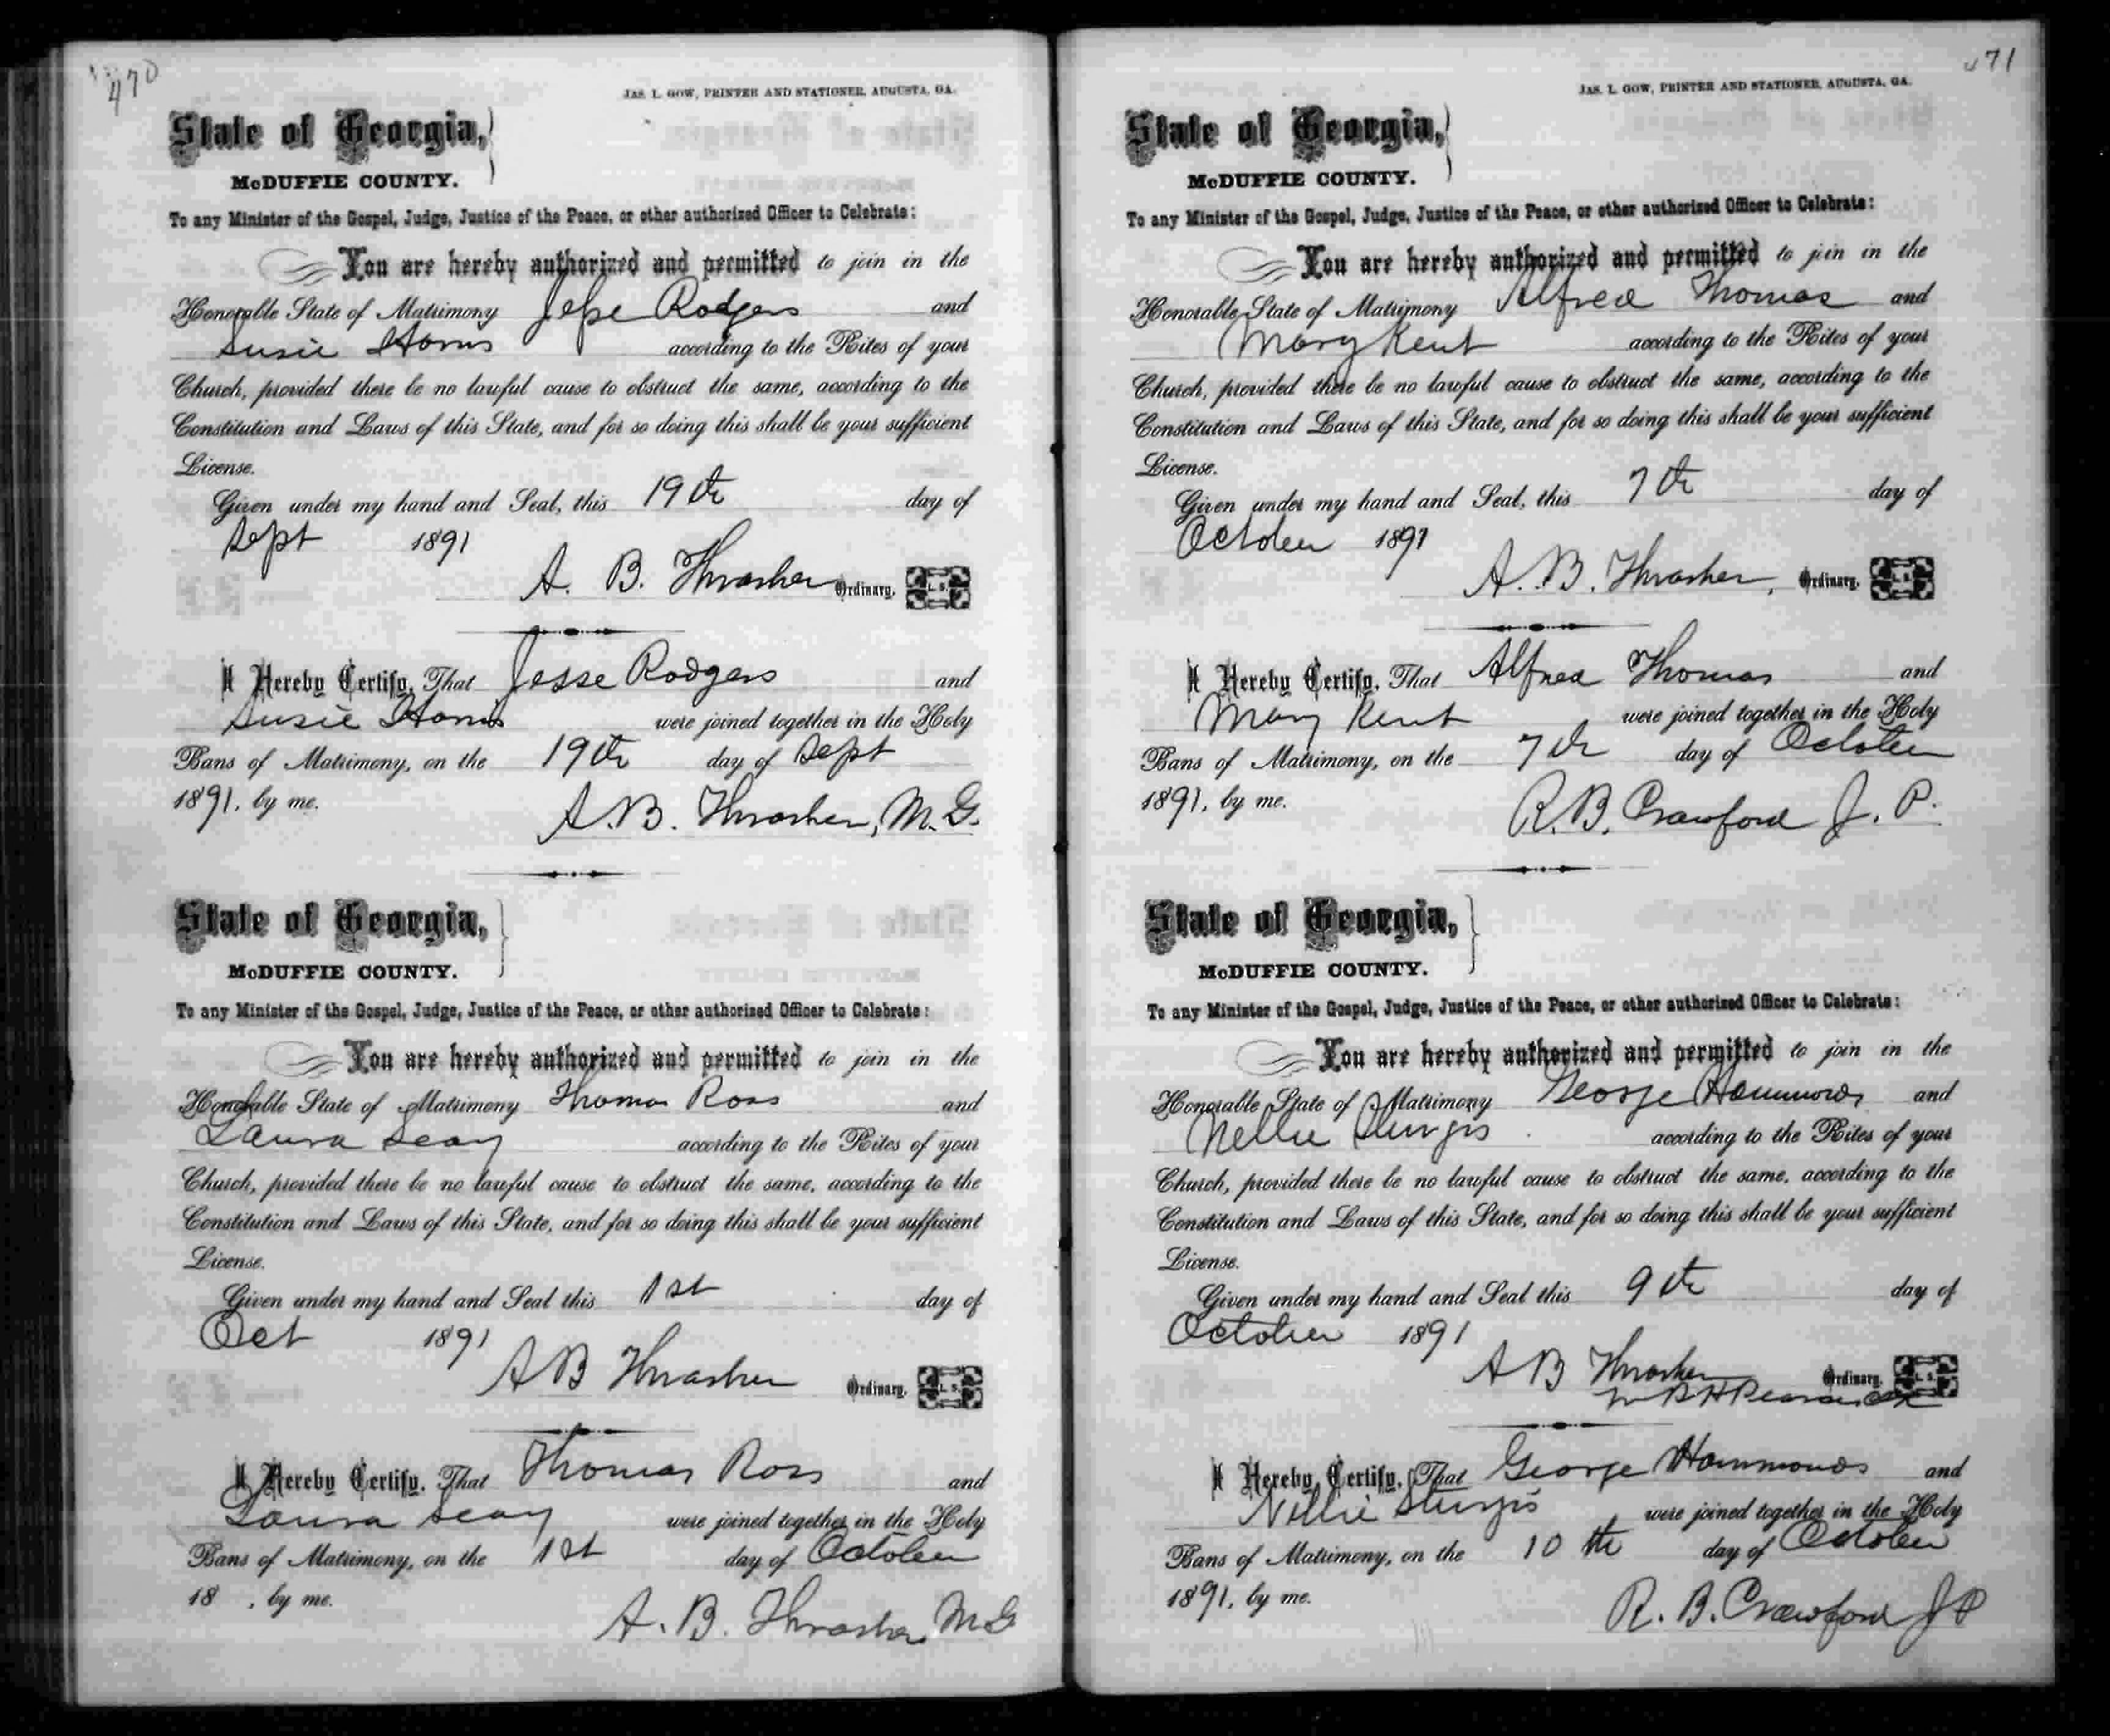 470
JAS. L. GOW, PRINTER AND STATIONER, AUGUSTA, GA.
State of Georgia,
McDUFFIE COUNTY.
To any Minister of the Gospel, Judge, Justice of the Peace, or other authorized Officer to Celebrate:
You are hereby authorized and permitted to join in the
Honorable State of Matrimony Jesse Rodgers and
Susie Harris according to the Rites of your
Church, provided there be no lawful cause to obstruct the same, according to the
Constitution and Laws of this State, and for so doing this shall be your sufficient
License.
Given under my hand and Seal, this 19th day of
Sept 1891
A. B. Thrasher Ordinary. L. S.
I Hereby Certify, That Jesse Rodgers and
Susie Harris were joined together in the Holy
Bans of Matrimony, on the 19th day of Sept
1891, by me.
A. B. Thrasher, M. G.
State of Georgia,
McDUFFIE COUNTY.
To any Minister of the Gospel, Judge, Justice of the Peace, or other authorized Officer to Celebrate:
You are hereby authorized and permitted to join in the
Honorable State of Matrimony Thomas Ross and
Laura Seay according to the Rites of your
Church, provided there be no lawful cause to obstruct the same, according to the
Constitution and Laws of this State, and for so doing this shall be your sufficient
License.
Given under my hand and Seal this 1st day of
Oct 1891
A B Thrasher Ordinary. L. S.
I Hereby Certify, That Thomas Ross and
Laura Seay were joined together in the Holy
Bans of Matrimony, on the 1st day of October
18 , by me.
A. B. Thrasher M G
471
JAS. L. GOW, PRINTER AND STATIONER, AUGUSTA, GA.
State of Georgia,
McDUFFIE COUNTY.
To any Minister of the Gospel, Judge, Justice of the Peace, or other authorized Officer to Celebrate:
You are hereby authorized and permitted to join in the
Honorable State of Matrimony Alfred Thomas and
Mary Kent according to the Rites of your
Church, provided there be no lawful cause to obstruct the same, according to the
Constitution and Laws of this State, and for so doing this shall be your sufficient
License.
Given under my hand and Seal, this 7th day of
October 1891
A. B. Thrasher, Ordinary. L. S.
I Hereby Certify, That Alfred Thomas and
Mary Kent were joined together in the Holy
Bans of Matrimony, on the 7th day of October
1891, by me.
R. B. Crawford J. P.
State of Georgia,
McDUFFIE COUNTY.
To any Minister of the Gospel, Judge, Justice of the Peace, or other authorized Officer to Celebrate:
You are hereby authorized and permitted to join in the
Honorable State of Matrimony George Hammonds and
Nellie Sturgis according to the Rites of your
Church, provided there be no lawful cause to obstruct the same, according to the
Constitution and Laws of this State, and for so doing this shall be your sufficient
License.
Given under my hand and Seal this 9th day of
October 1891
A B Thrasher Ordinary. L. S.
I Hereby Certify, That George Hammonds and
Nellie Sturgis were joined together in the Holy
Bans of Matrimony, on the 10th day of October
1891, by me.
R. B. Crawford J P